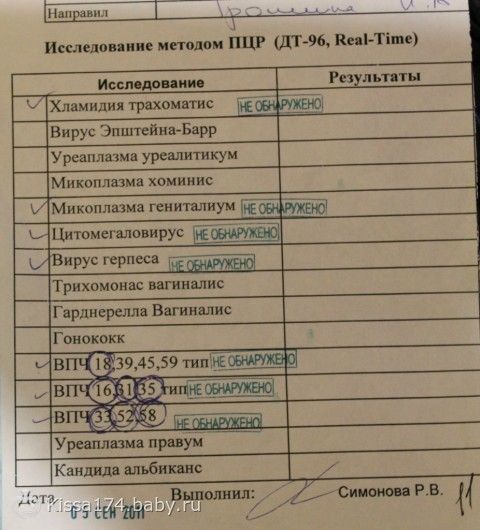 Направил
Исследование методом ПЦР (ДТ-96, Real-Time)
Исследование Результаты
Хламидия трахоматис НЕ ОБНАРУЖЕНО
Вирус Эпштейна-Барр
Уреаплазма уреалитикум
Микоплазма хоминис
Микоплазма гениталиум НЕ ОБНАРУЖЕНО
Цитомегаловирус НЕ ОБНАРУЖЕНО
Вирус герпеса НЕ ОБНАРУЖЕНО
Трихомонас вагиналис
Гарднерелла Вагиналис
Гонококк
ВПЧ 18,39,45,59 тип НЕ ОБНАРУЖЕНО
ВПЧ 16 31 35 тип НЕ ОБНАРУЖЕНО
ВПЧ 33 52 58 НЕ ОБНАРУЖЕНО
Уреаплазма правум
Кандида альбиканс
Дата Выполнил: Симонова Р.В.
05 СЕН 2011
Kissa174.baby.ru